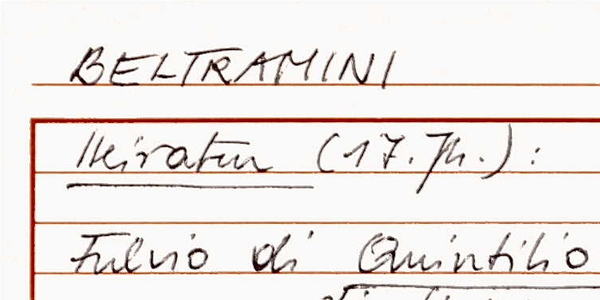 BELTRAMINI
Heiraten (17. Jh.):
Fulvio di Quintilio